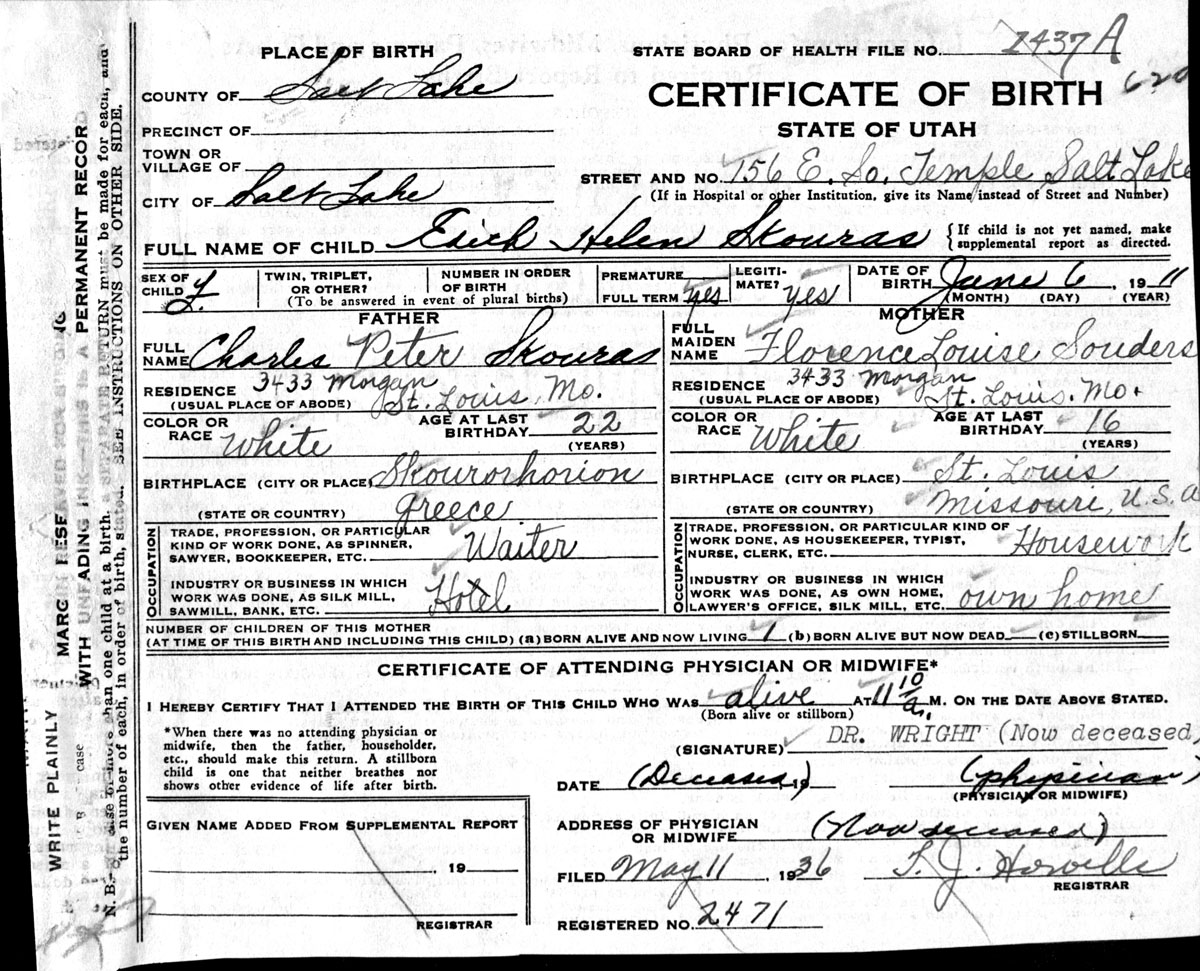 PLACE OF BIRTH
STATE BOARD OF HEALTH FILE NO. 1437 A
620
COUNTY OF Salt Lake
CERTIFICATE OF BIRTH
PRECINCT OF
STATE OF UTAH
TOWN OR
VILLAGE OF
STREET AND NO. 156 E. So. Temple Salt Lake
CITY OF Salt Lake
(If in Hospital or other Institution, give its Name instead of Street and Number)
FULL NAME OF CHILD Edith Helen Skouras
{If child is not yet named, make
supplemental report as directed.
SEX OF
CHILD f.
TWIN, TRIPLET,
OR OTHER?
NUMBER IN ORDER
OF BIRTH
(To be answered in event of plural births)
PREMATURE
FULL TERM yes
LEGITI-
MATE? yes
DATE OF
BIRTH June 6, 1911
(MONTH) (DAY) (YEAR)
FATHER
FULL
NAME Charles Peter Skouras
RESIDENCE 3433 Morgan
(USUAL PLACE OF ABODE) St. Louis, Mo.
COLOR OR
RACE White
AGE AT LAST
BIRTHDAY 22
(YEARS)
BIRTHPLACE (CITY OR PLACE) Skourorhorion
(STATE OR COUNTRY) Greece
OCCUPATION
TRADE, PROFESSION, OR PARTICULAR
KIND OF WORK DONE, AS SPINNER,
SAWYER, BOOKKEEPER, ETC. Waiter
INDUSTRY OR BUSINESS IN WHICH
WORK WAS DONE, AS SILK MILL,
SAWMILL, BANK, ETC. Hotel
MOTHER
FULL
MAIDEN
NAME Florence Louise Souders
RESIDENCE 3433 Morgan
(USUAL PLACE OF ABODE) St. Louis. Mo.
COLOR OR
RACE White
AGE AT LAST
BIRTHDAY 16
(YEARS)
BIRTHPLACE (CITY OR PLACE) St. Louis
(STATE OR COUNTRY) Missouri, U.S.A
OCCUPATION
TRADE, PROFESSION, OR PARTICULAR KIND OF
WORK DONE, AS HOUSEKEEPER, TYPIST,
NURSE, CLERK, ETC. Housework
INDUSTRY OR BUSINESS IN WHICH
WORK WAS DONE, AS OWN HOME,
LAWYER'S OFFICE, SILK MILL, ETC. own home
NUMBER OF CHILDREN OF THIS MOTHER
(AT TIME OF THIS BIRTH AND INCLUDING THIS CHILD) (a) BORN ALIVE AND NOW LIVING 1 (b) BORN ALIVE BUT NOW DEAD (c) STILLBORN
CERTIFICATE OF ATTENDING PHYSICIAN OR MIDWIFE*
I HEREBY CERTIFY THAT I ATTENDED THE BIRTH OF THIS CHILD WHO WAS alive AT 11 10/a. M. ON THE DATE ABOVE STATED.
(Born alive or stillborn)
*When there was no attending physician or
midwife, then the father, householder,
etc., should make this return. A stillborn
child is one that neither breathes nor
shows other evidence of life after birth.
(SIGNATURE) DR. WRIGHT (Now deceased)
DATE (Deceased) 19 (physician)
(PHYSICIAN OR MIDWIFE)
GIVEN NAME ADDED FROM SUPPLEMENTAL REPORT
, 19
REGISTRAR
ADDRESS OF PHYSICIAN
OR MIDWIFE (Now deceased)
FILED May 11 1936
REGISTRAR
REGISTERED NO. 2471
WRITE PLAINLY WITH UNFADING INK—THIS IS A PERMANENT RECORD
N. B. than one child at a birth, a SEPARATE RETURN must be made for each, and
the number of each, in order of birth, stated. SEE INSTRUCTIONS ON OTHER SIDE.